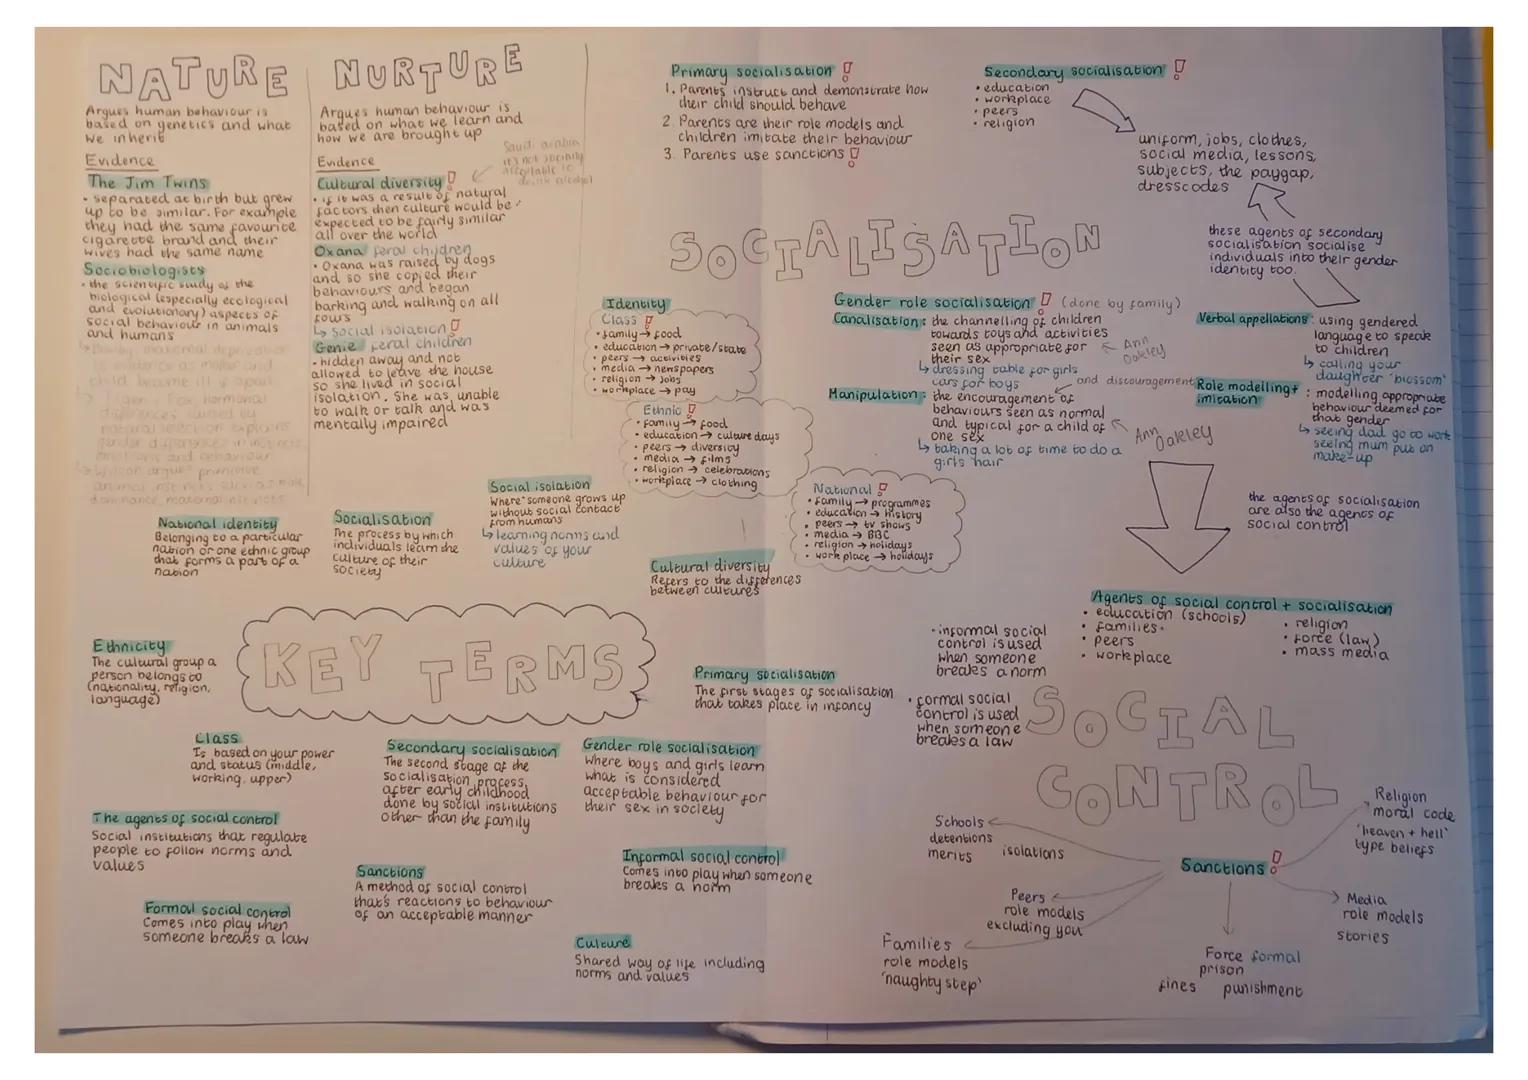 NATURE
Argues human behaviour is
based on genetics and what
we inherit
Evidence
The Jim Twins
• separated at birth but grew
up to be similar. For example
they had the same favourite
cigarette brand and their
wives had the same name
Sociobiologists
• the scientific study of the
biological (especially ecological
and evolutionary) aspects of
social behaviour in animals
and humans
NURTURE
Argues human behaviour is
based on what we learn and
how we are brought up
Saudi arabia
it's not socially
acceptable to
drink alcohol
Evidence
Cultural diversity !
• if it was a result of natural
factors then culture would be
expected to be fairly similar
all over the world
Oxana feral children
• Oxana was raised by dogs
and so she copied their
behaviours and began
barking and walking on all
fours
↳ social isolation !
Genie feral children
• hidden away and not
allowed to leave the house
so she lived in social
isolation. She was unable
to walk or talk and was
mentally impaired
Primary socialisation !
1. Parents instruct and demonstrate how
their child should behave
2. Parents are their role models and
children imitate their behaviour
3. Parents use sanctions !
Secondary socialisation !
• education
• workplace
• peers
• religion
uniform, jobs, clothes,
social media, lessons,
subjects, the paygap,
dresscodes
these agents of secondary
socialisation socialise
individuals into their gender
identity too.
SOCIALISATION
Identity
Class !
• family → food
• education → private/state
• peers → activities
• media → newspapers
• religion → jobs
• workplace → pay
Ethnic !
• family → food
• education → culture days
• peers → diversity
• media → films
• religion → celebrations
• workplace → clothing
National !
• family → programmes
• education → history
• peers → tv shows
• media → BBC
• religion → holidays
• work place → holidays
Gender role socialisation ! (done by family)
Canalisation : the channelling of children
towards toys and activities
seen as appropriate for
their sex
← Ann
Oakley
↳ dressing table for girls
cars for boys
and discouragement
Manipulation : the encouragement of
behaviours seen as normal
and typical for a child of
one sex
Ann Oakley
↳ taking a lot of time to do a
girls hair
Verbal appellations : using gendered
language to speak
to children
↳ calling your
daughter 'blossom'
Role modelling +
imitation : modelling appropriate
behaviour deemed for
that gender
↳ seeing dad go to work
seeing mum put on
make-up
the agents of socialisation
are also the agents of
social control
National identity
Belonging to a particular
nation or one ethnic group
that forms a part of a
nation
Socialisation
The process by which
individuals learn the
culture of their
society
Social isolation
Where someone grows up
without social contact
from humans
↳ learning norms and
values of your
culture
Cultural diversity
Refers to the differences
between cultures
KEY TERMS
Ethnicity
The cultural group a
person belongs to
(nationality, religion,
language)
Primary socialisation
The first stages of socialisation
that takes place in infancy
Class
Is based on your power
and status (middle,
working, upper)
Secondary socialisation
The second stage of the
socialisation process,
after early childhood
done by social institutions
other than the family
Gender role socialisation
Where boys and girls learn
what is considered
acceptable behaviour for
their sex in society
The agents of social control
Social institutions that regulate
people to follow norms and
values
Sanctions
A method of social control
that's reactions to behaviour
of an acceptable manner
Informal social control
Comes into play when someone
breaks a norm
Formal social control
Comes into play when
someone breaks a law
Culture
Shared way of life including
norms and values
Agents of social control + socialisation
• education (schools)
• families
• peers
• workplace
• religion
• force (law)
• mass media
• informal social
control is used
when someone
breaks a norm
• formal social
control is used
when someone
breaks a law
SOCIAL
CONTROL
Sanctions !
Schools
detentions
merits isolations
Peers
role models
excluding you
Families
role models
'naughty step'
Force formal
prison
fines punishment
Media
role models
stories
Religion
'moral code
'heaven + hell'
type beliefs